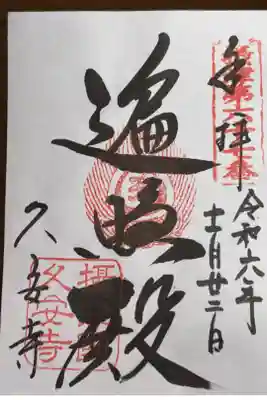 奉拝
令和六年
十一月廿二日
遍照殿
久安寺
久安寺